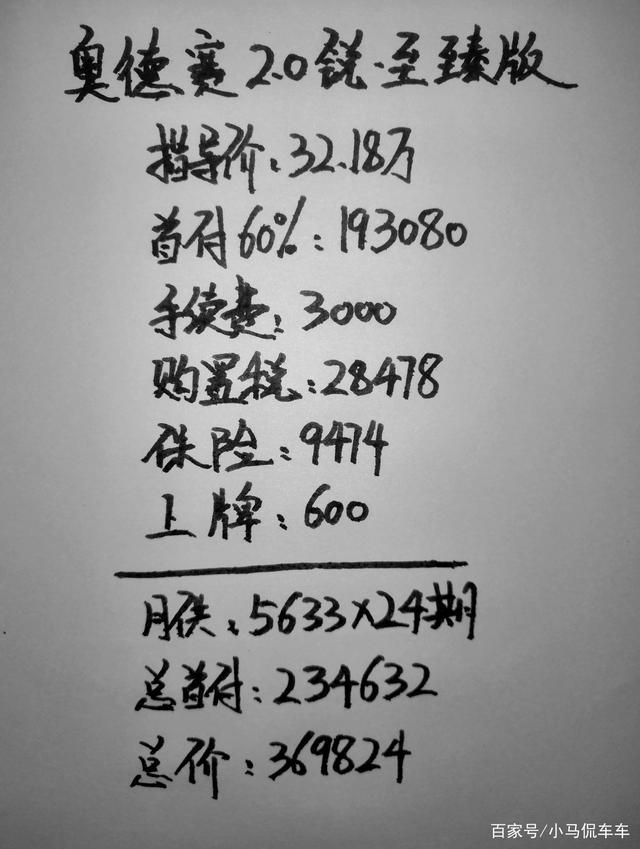 奥德赛2.0锐·至臻版
指导价:32.18万
首付60%:193080
手续费:3000
购置税:28478
保险:9474
上牌:600
月供:5633×24期
总首付:234632
总价:369824
百家号/小马侃车车